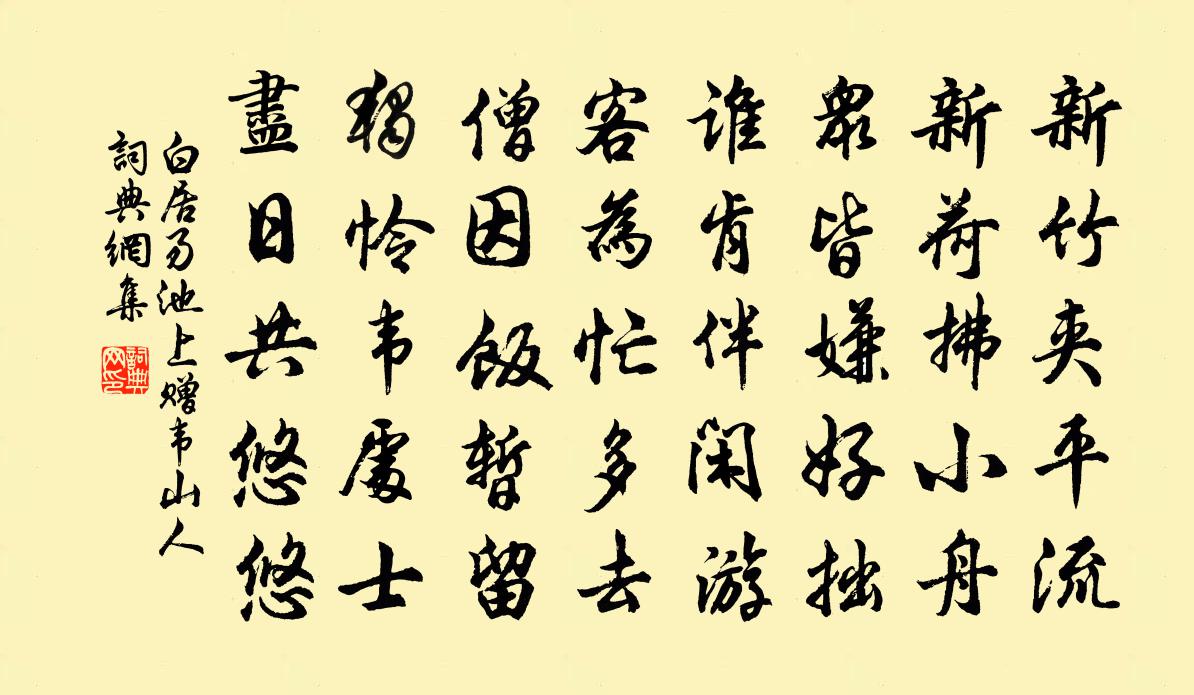 新竹夾平流
新荷拂小舟
眾皆嫌好拙
誰肯伴閑游
客為忙多去
僧因飯暫留
獨憐韦處士
盡日共悠悠
白居易池上赠韦山人
詞典網集
詞典
网印